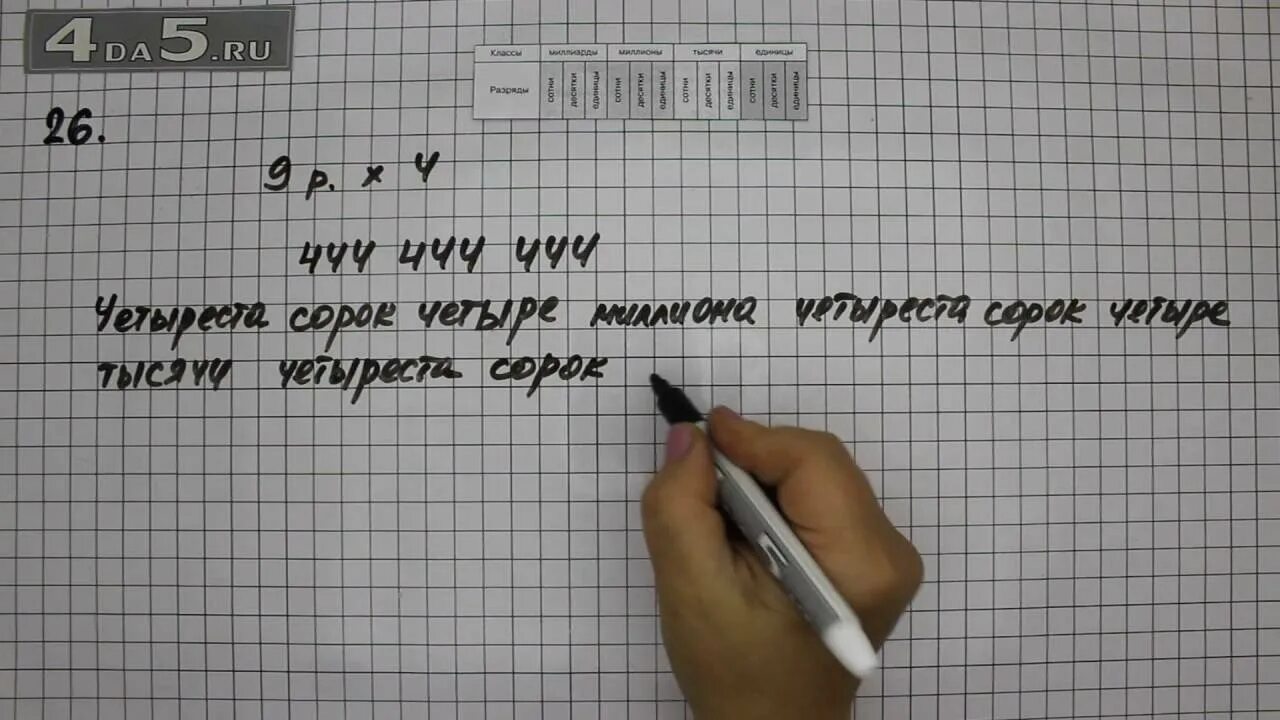 4DA5.RU
Классы миллиарды миллионы тысячи единицы
Разряды сотни десятки единицы сотни десятки единицы сотни десятки единицы сотни десятки единицы
26.
9 р. х 4
444 444 444
Четыреста сорок четыре миллиона четыреста сорок четыре
тысячи четыреста сорок